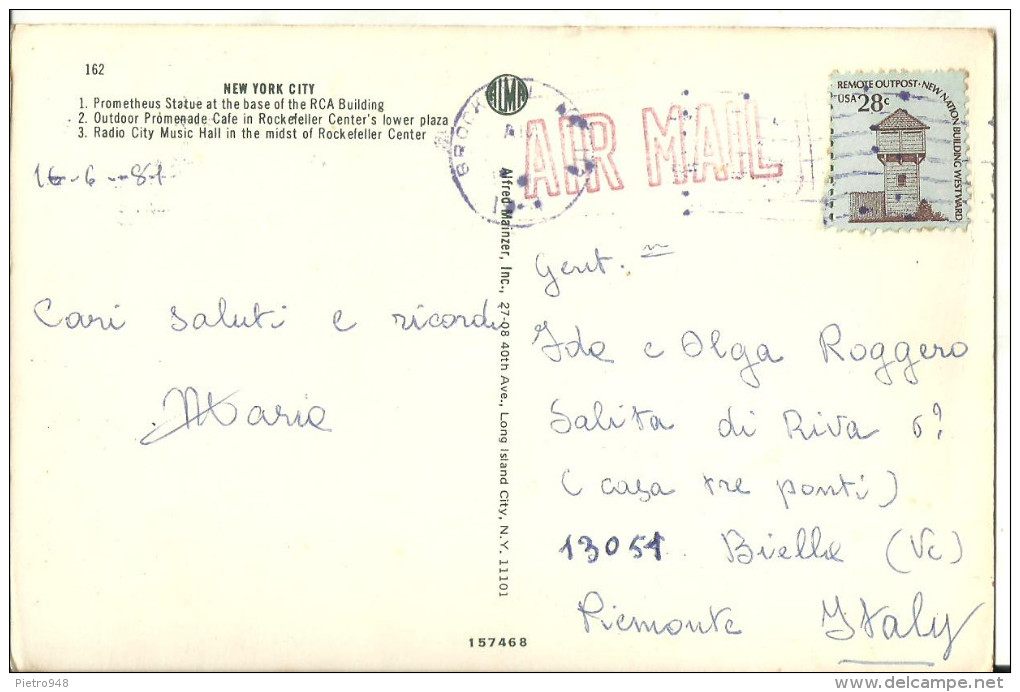 162
NEW YORK CITY
1. Prometheus Statue at the base of the RCA Building
2. Outdoor Promenade Cafe in Rockefeller Center's lower plaza
3. Radio City Music Hall in the midst of Rockefeller Center
16-6-81
Cari saluti e ricordi
Maria
ALMA
Alfred Mainzer, Inc., 27-08 40th Ave., Long Island City, N.Y. 11101
157468
AIR MAIL
REMOTE OUTPOST · NEW NATION BUILDING WESTWARD
USA 28c
Gent.
Ida e Olga Roggero
Salita di Riva 6?
(casa tre ponti)
13051 Biella (Vc)
Piemonte Italy
Pietro948
www.delcampe.net